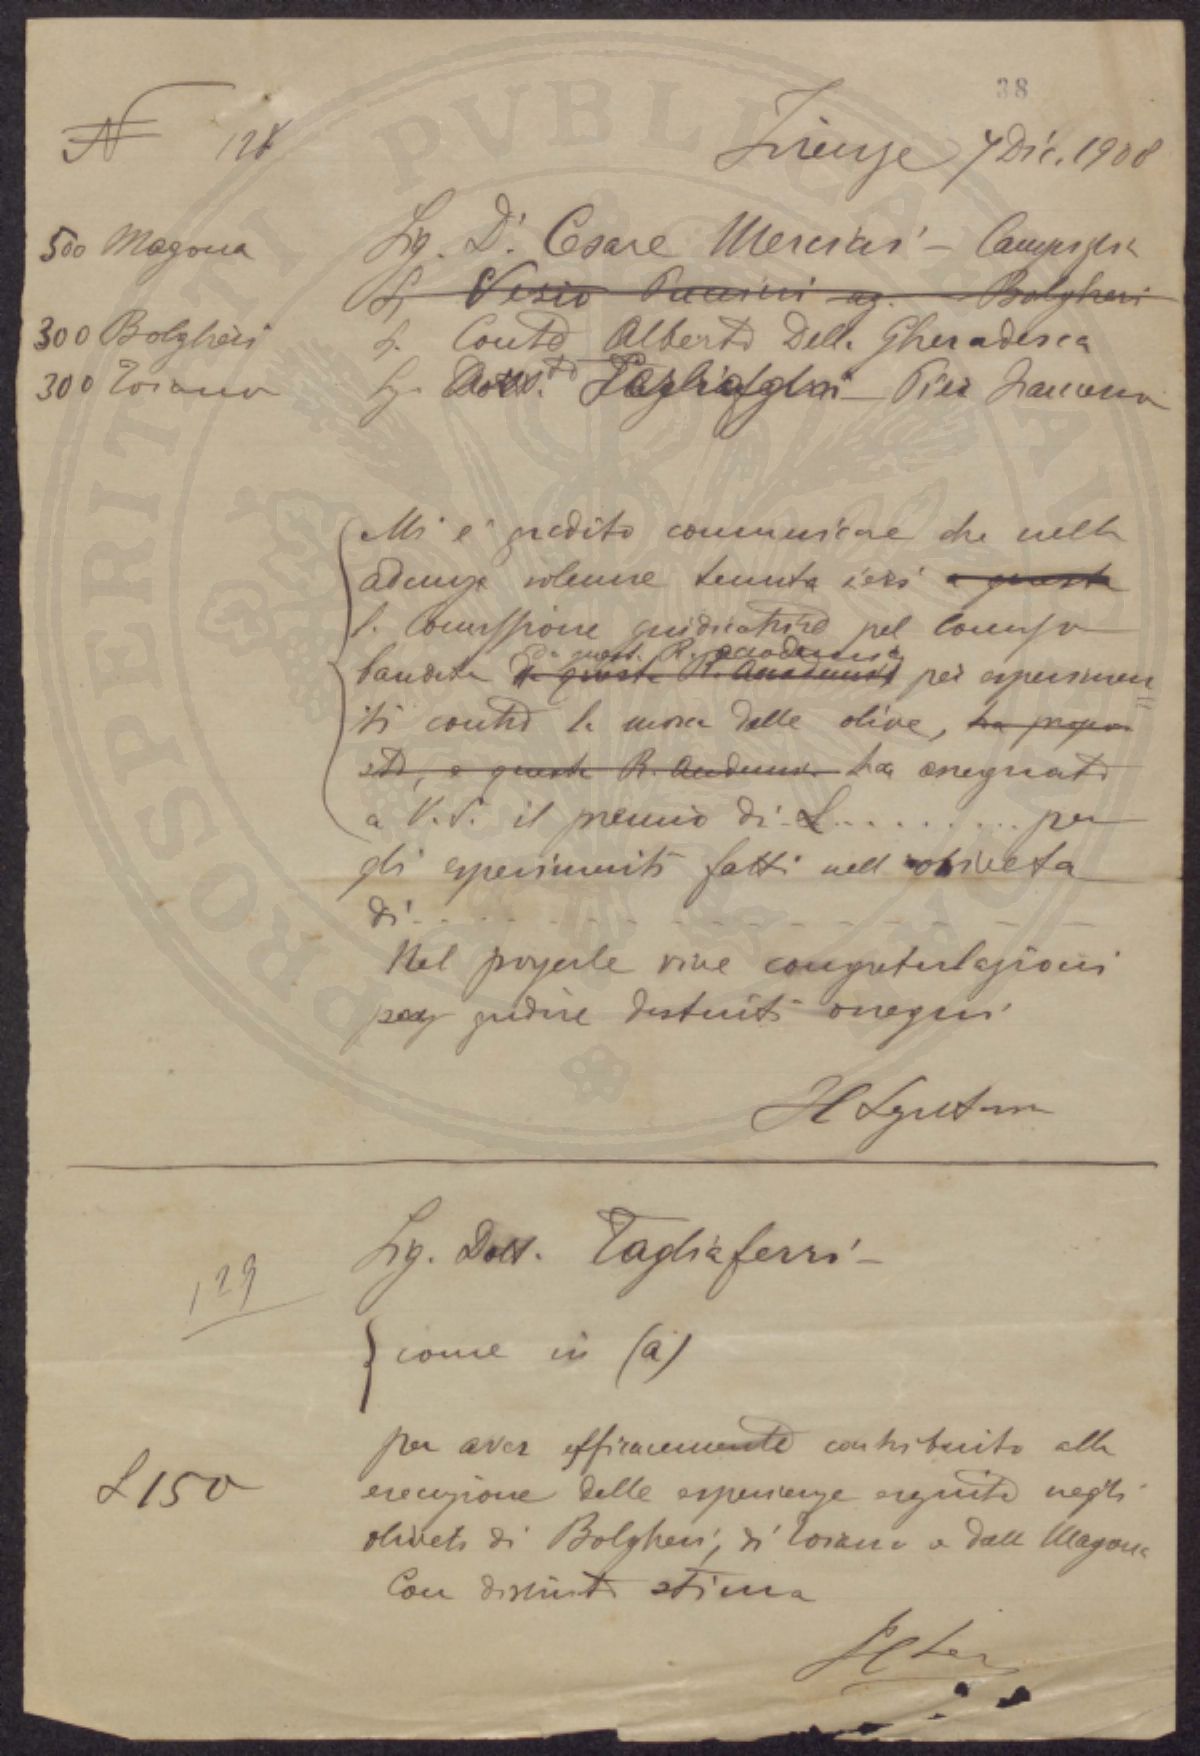 38
N 128
Firenze 7 Dic. 1908
500 Magona Sig. D. Cesare Merciai - Campiglia
S. Vesio Puccini ag. Bolgheri
300 Bolgheri S. Conte Alberto Della Gherardesca
300 Toiano Sig. Pier Francesco
Mi è gradito comunicare che nella
adunza solenne tenuta ieri a questa
la Commissione giudicatrice pel Concorso
da questa R. accademia
bandito da questa R. Accademia per esperimen
ti contro la mosca delle olive, ha propo
sto, e questa R. Accademia ha assegnato
a V.S. il premio di L......... per
gli esperimenti fatti nell'oliveta
di
Nel porgerle vive congratulazioni
gradire distinti ossequi
Il Segretario
129
Sig. Dott. Tagliaferri -
come in (a)
per aver efficacemente contribuito alla
L 150
esecuzione delle esperienze eseguite negli
oliveti di Bolgheri, di Toiano e della Magona
Con distinta stima
Il Seg
PROSPERITATI PVBLICAE